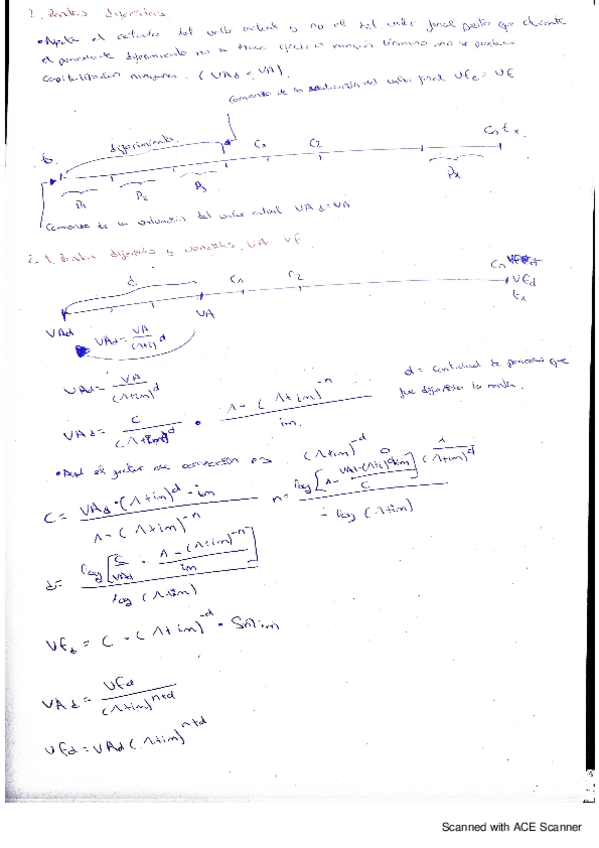 2. Rentas diferidas
• Afecta el cálculo del valor actual y no el del valor final puesto que durante
el periodo de diferimiento no se tiene ningún término no se produce
capitalización ninguna. (VAd < VA).
Comienzo de la valoración del valor final VFd = VF
diferimiento
to
C1
C2
Cn tx
P1
P2
P3
Px
Comienzo de la valoración del valor actual VAd < VA
2.1. Rentas diferidas y VA VF
d
C1
C2
Cn
VFd
tx
VAd
VA
VAd = VA / (1+i)^d
VAd = VA / (1+im)^d
d = Cantidad de periodos que
fue diferida la renta.
VAd = C / (1+im)^d • 1 - (1+im)^-n / im
• Aquí el factor de corrección es (1+im)^-d o 1 / (1+im)^d
C = VAd • (1+im)^d • im / 1 - (1+im)^-n
n = log [1 - VAd • (1+im)^d im / C] / - log (1+im)
d = log [C / VAd • 1 - (1+im)^-n / im] / log (1+im)
VFd = C • (1+im)^-d • Sn¬im
VAd = VFd / (1+im)^n+d
VFd = VAd (1+im)^n+d
Scanned with ACE Scanner